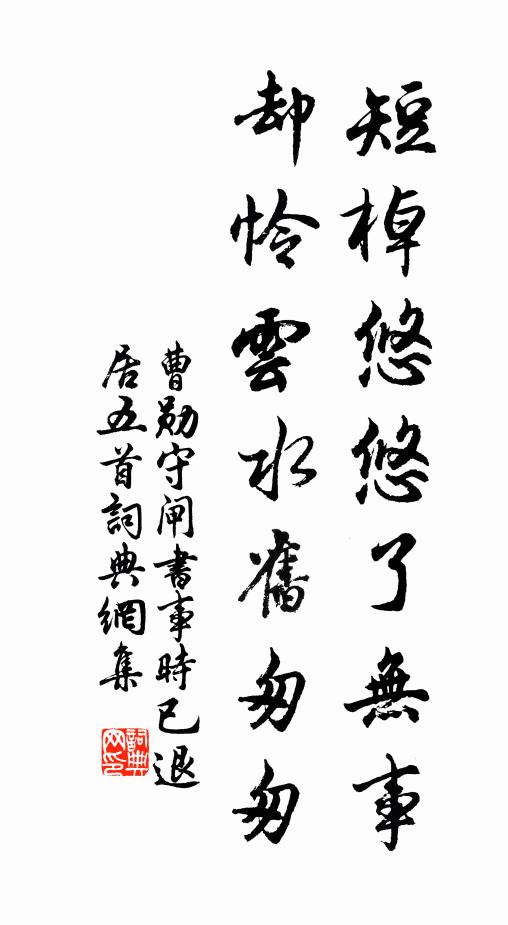 短棹悠悠了無事
却怜雲水舊匆匆
曹勛守闸書事時已退
居五首詞典網集
詞典
网印